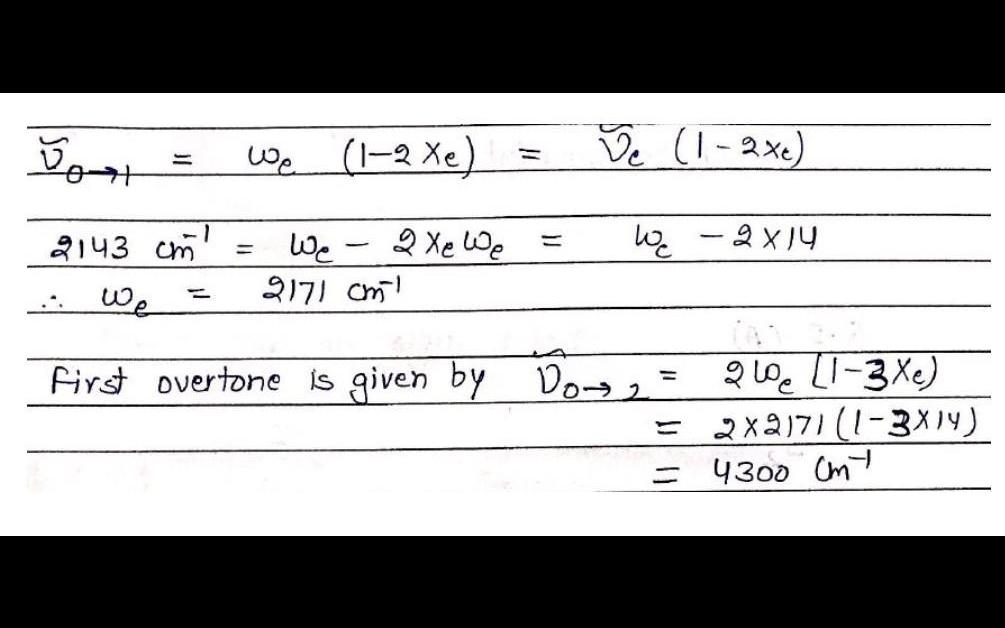 ν̄₀→₁ = ωe (1-2 Xe) = ν̄e (1 - 2xe)
2143 cm⁻¹ = ωe - 2 Xe ωe = ωe - 2 X 14
∴ ωe = 2171 cm⁻¹
First overtone is given by ν̄₀→₂ = 2ωe [1-3Xe)
= 2 X 2171 (1-3X14)
= 4300 cm⁻¹